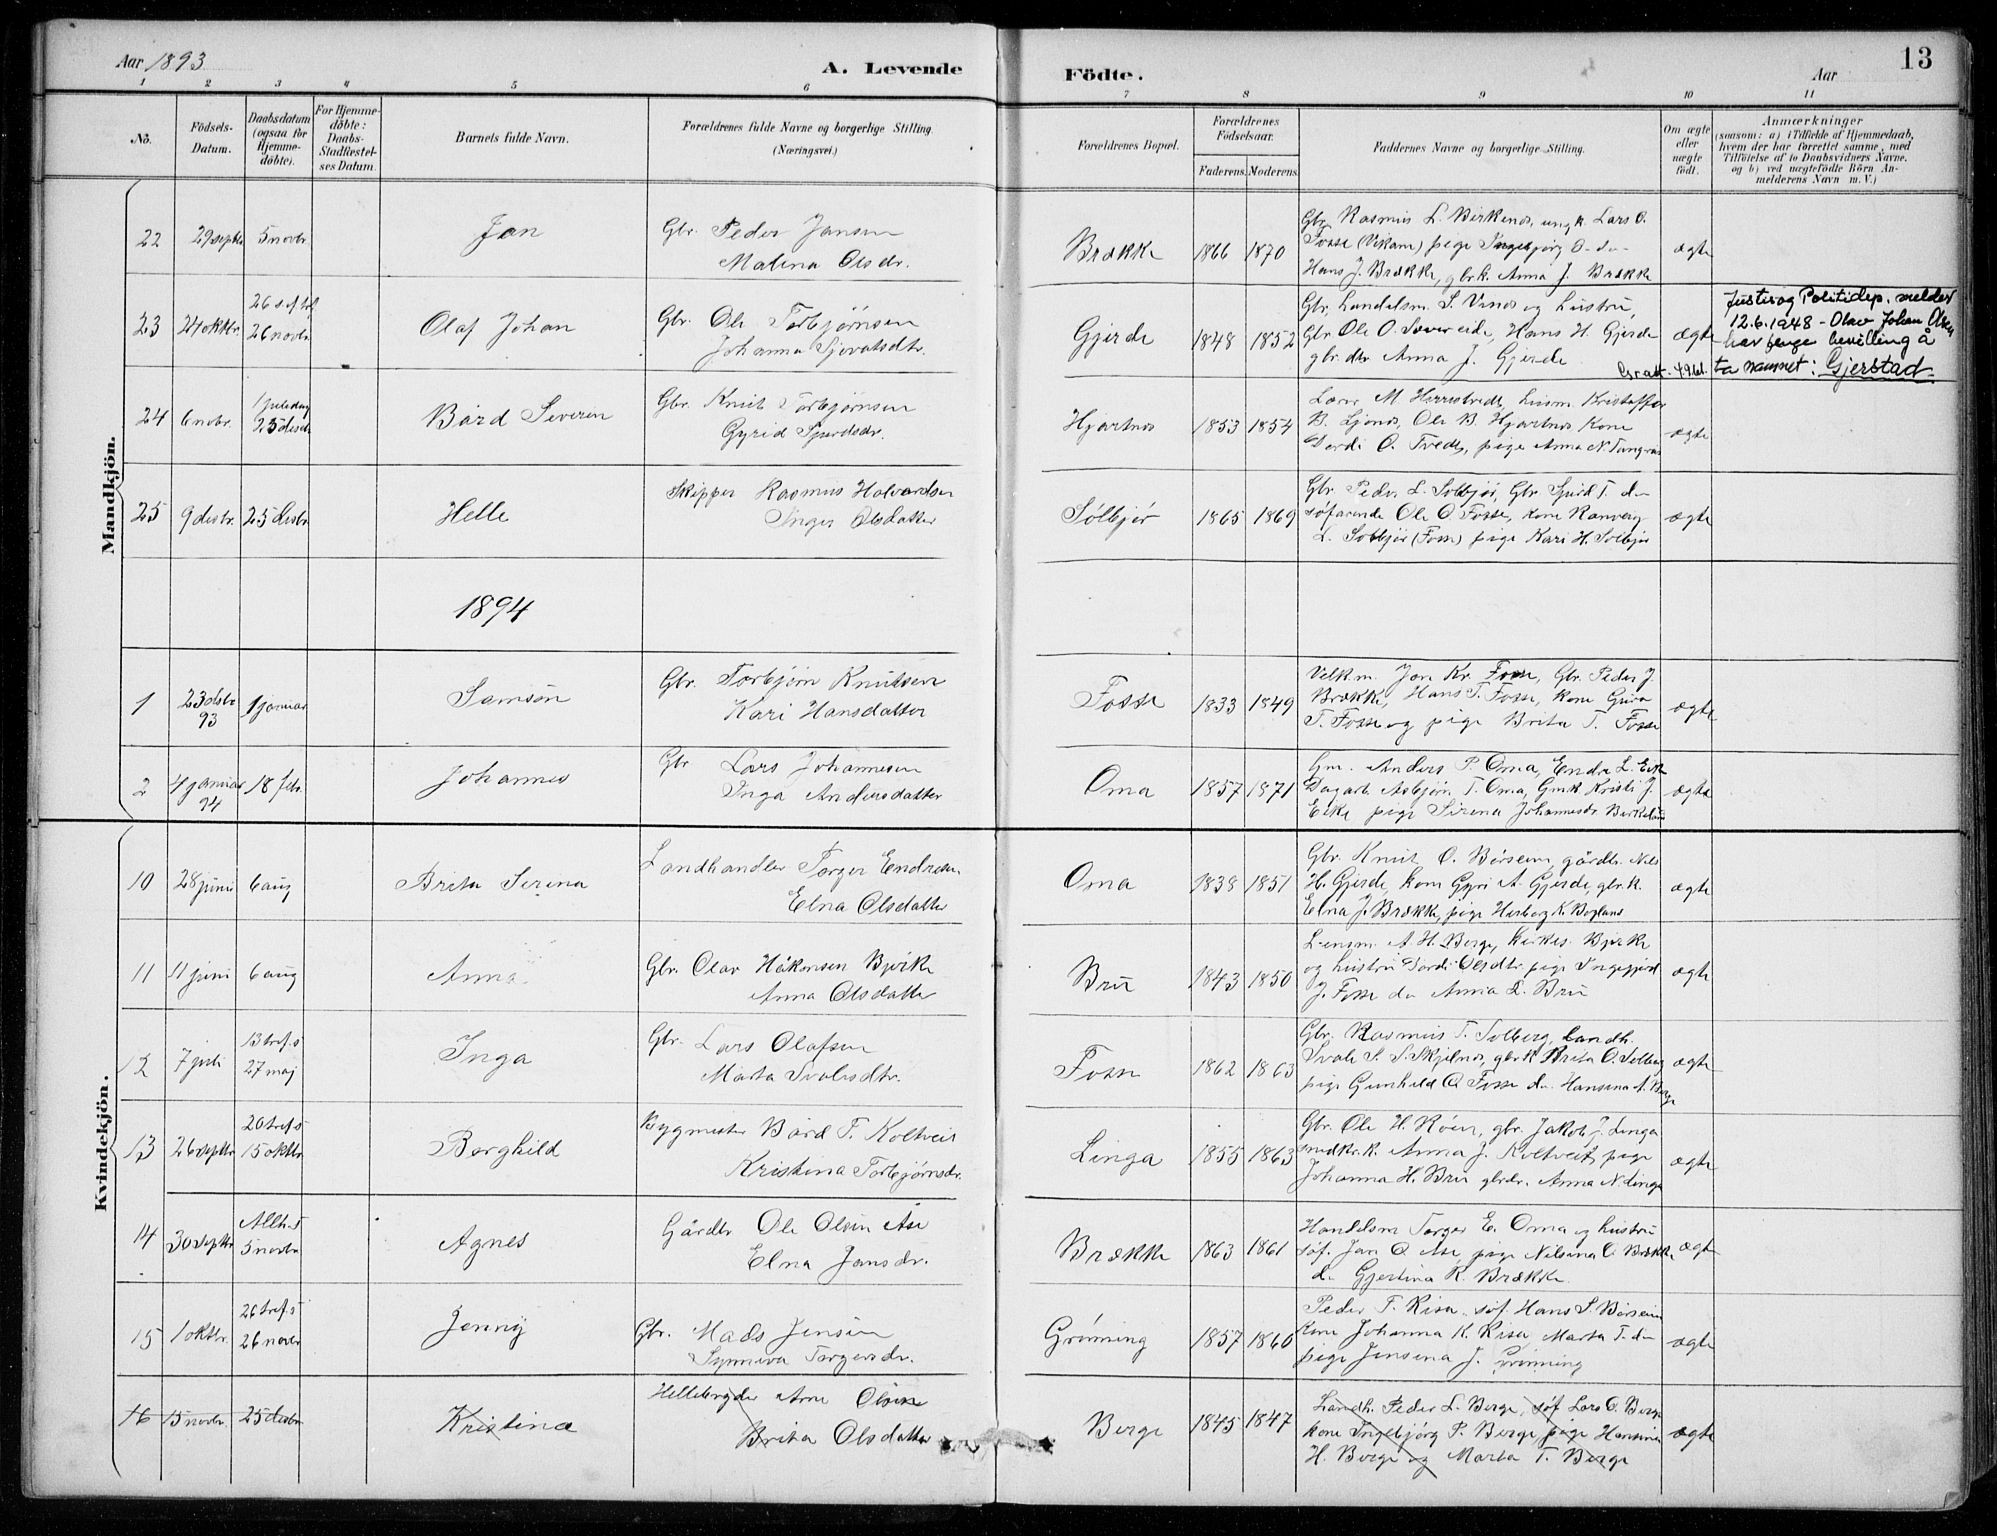 Aar 1893
A. Levende
Födte.
Aar
13
1 2 3 4 5 6 7 8 9 10 11
No.
Födsels-Datum.
Daabsdatum (ogsaa for Hjemme-döbte).
For Hjemme-döbte: Daabs-Stadfestel-ses Datum.
Barnets fulde Navn.
Forældrenes fulde Navne og borgerlige Stilling. (Næringsvei.)
Forældrenes Bopæl.
Forældrenes Födselsaar.
Faderens. Moderens.
Faddernes Navne og borgerlige Stilling.
Om ægte eller uægte födt.
Anmærkninger
(saasom: a) i Tilfælde af Hjemmedaab, hvem der har forrettet samme, med Tilföielse af to Daabsvidners Navne. og b) ved uægtefödte Börn An-melderens Navn m. V.)
Mandkjön.
22 29 septbr 5 novbr. Jan
Gbr. Peder Jansen
Malena Olsdr.
Brække 1866 1870
Gbr. Rasmus L. Birkenes, ungk. Lars O.
Fosse (Vikam) pige Ingebjørg O. do
Hans J. Brække, gbrk. Anna J. Brække
ægte
23 24 oktbr. 26 novbr. Olaf Johan
Gbr. Ole Torbjørnsen
Johanna Sjovatsdtr.
Gjerde 1848 1852
Gbr. Ole O. Hans H. Gjerde
gbr. dtr Anna J. Gjerde
ægte
Justis og Politidep. melder
12.6.1948 - Olav Johan Olsen
har fenge bevilling å
ta namnet: Gjerstad
24 6 novbr. 1 juledag Bård Severin
Gbr. Knut Torbjørnsen
Gyrid Sjurdsdr.
Hjartnes 1853 1854
Lærer M. Kristoffer
B. Ljones, Ole B. Hjartnes Kone
O. Tvedt, pige Anna N. Tangeras
ægte
25 9 desbr. 25 desbr. Helle
Skipper Rasmus Halvordsen
Inger Olsdatter
Sølbjør 1865 1869
Gbr. Peder L. Solbjør, Gbr. Sjurd T. do
søfarende Ole O. Fosse, kone Ranveig
L. Solbjør (Fosse) pige Kari H. Solbjør
ægte
1894
1 23 desbr 93 1 januar Samson
Gbr. Torbjørn Knutsen
Kari Hansdatter
Fosse 1833 1849
Jon Kr. Fosse, Gbr. Peder J.
Brække, Hans T. Fosse, kone Guro
T. Fosse og pige Brita T. Fosse
ægte
2 4 januar 94 18 febr. Johannes
Gbr Lars Johannesen
Inga Andersdatter
Oma 1857 1871
Gm. Anders P. Oma, Endre L. Eike
Dagarb. Asbjørn T. Oma, Gmk Kristi J.
Eike pige Sirena Johannesdr Berkeland
ægte
Kvindekjön.
10 28 juni 6 aug Brita Serina
Landhandler Torger Endresen
Elna Olsdatter
Oma 1838 1851
Gbr. Knut O. Børsem, gårdbr. Nils
H. Gjerde, kone Gyri A. Gjerde, gbr. k.
Elna J. Brække, pige Herborg K.
ægte
11 11 juni 6 aug Anna
Gbr. Olav Håkonsen Bjerke
Anna Olsdatter
Bru 1843 1850
Lensm. A. H. Berge, Kirkes. Bjerke
og hustru Tordi Olsdtr. pige Ingegjerd
J. Fosse do Anna L. Bru
ægte
12 13 tref. s 27 maj Inga
Gbr. Lars Olafsen
Marta Svalesdtr.
Fosse 1862 1863
Gbr. Rasmus T. Solberg, Landh.
Svale S. Skjelnes, gbrk Brita O. Solberg
pige Gunhild O. Fosse do Hansena A. Berge
ægte
13 26 septbr 20 tref. s 15 oktbr Borghild
Bygmester Bård T. Koltveit
Kristina Torbjørnsdr.
Linga 1855 1863
Gbr. Ole H. Røen, gbr. Jakob J. Linga
Anna J. Koltveit, pige
Johanna H. Bru gbrdr. Anna N. Linga
ægte
14 30 septbr Allh. s 5 novbr Agnes
Gårdbr Ole Olsen Åse
Elna Jansdr.
Brække 1863 1861
Handelsm Torger E. Oma og hustru
søf. Jan O. Åse, pige Nilsina O. Brække
do Gjertina R. Brække.
ægte
15 1 oktbr. 26 tref. s 26 novbr Jenny
Gbr. Mads Jensen
Synneva Torgersdr.
Grønning 1857 1860
Peder T. Risa søf. Hans S. Børsem
kone Johanna K. Risa, Marta T. do
pige Jensena J. Grønning
ægte
16 15 novbr. 25 desbr Kristina
Hellebryder Arne Olsen
Brita Olsdatter
Berge 1845 1847
Landh. Peder L. Berge, søf Lars O. Berge
kone Ingebjørg P. Berge, pige Hansina
H. Berge og Marta T. Berge
ægte